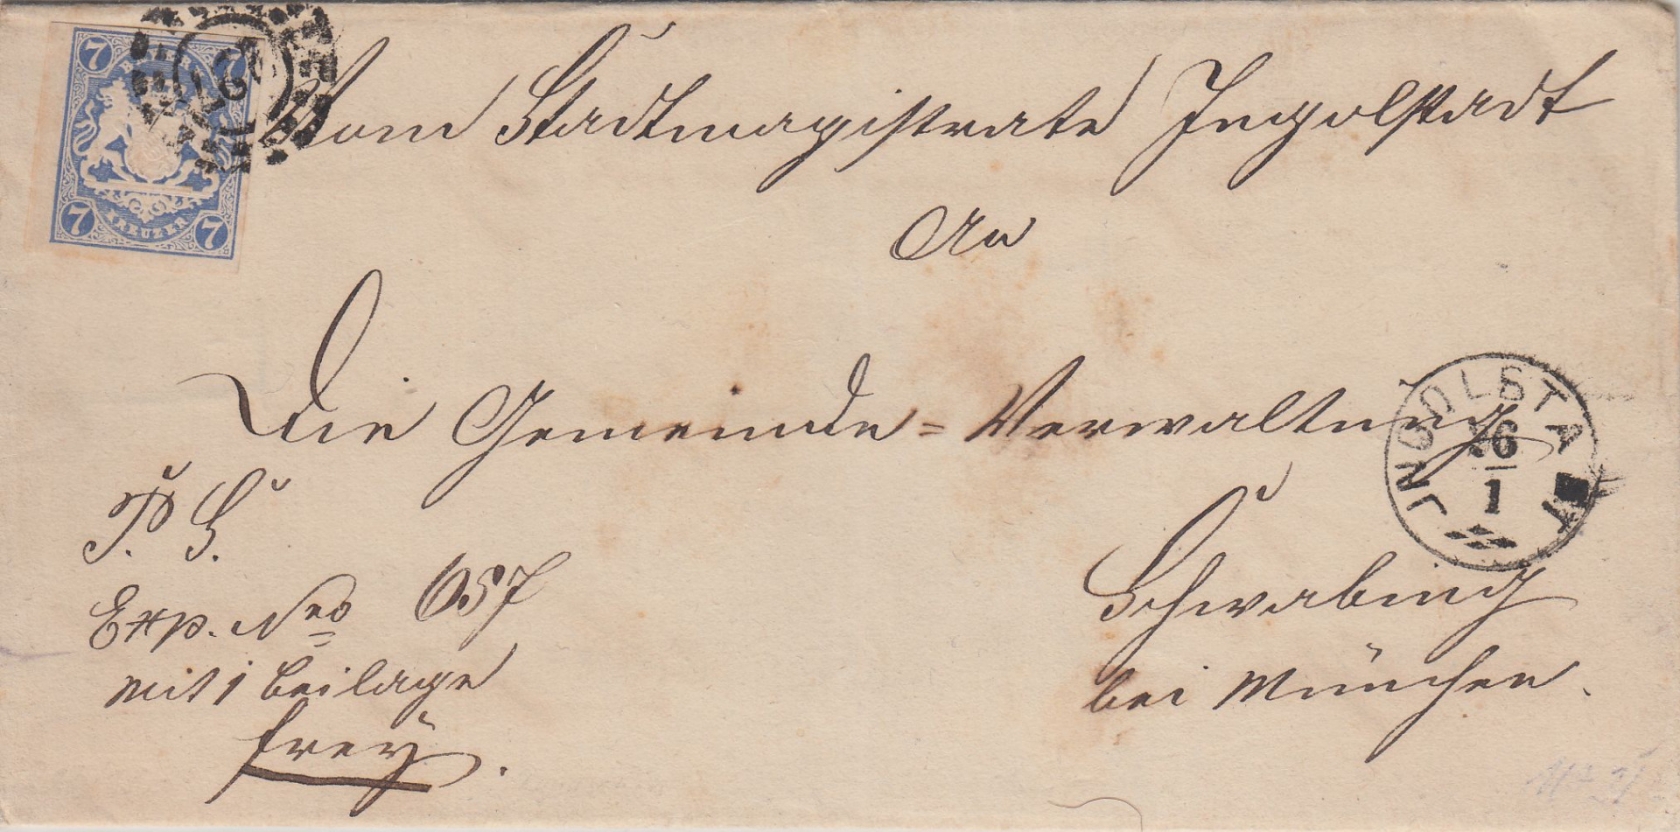 7 7
BAYERN
Vom Stadtmagistrate Ingolstadt
KREUZER
7 7
An
Die Gemeinde=Verwaltung
JNGOLSTADT
1
P. S.
Schwabing
Exp. Nro 657
mit 1 Beilage
bei München.
frey.